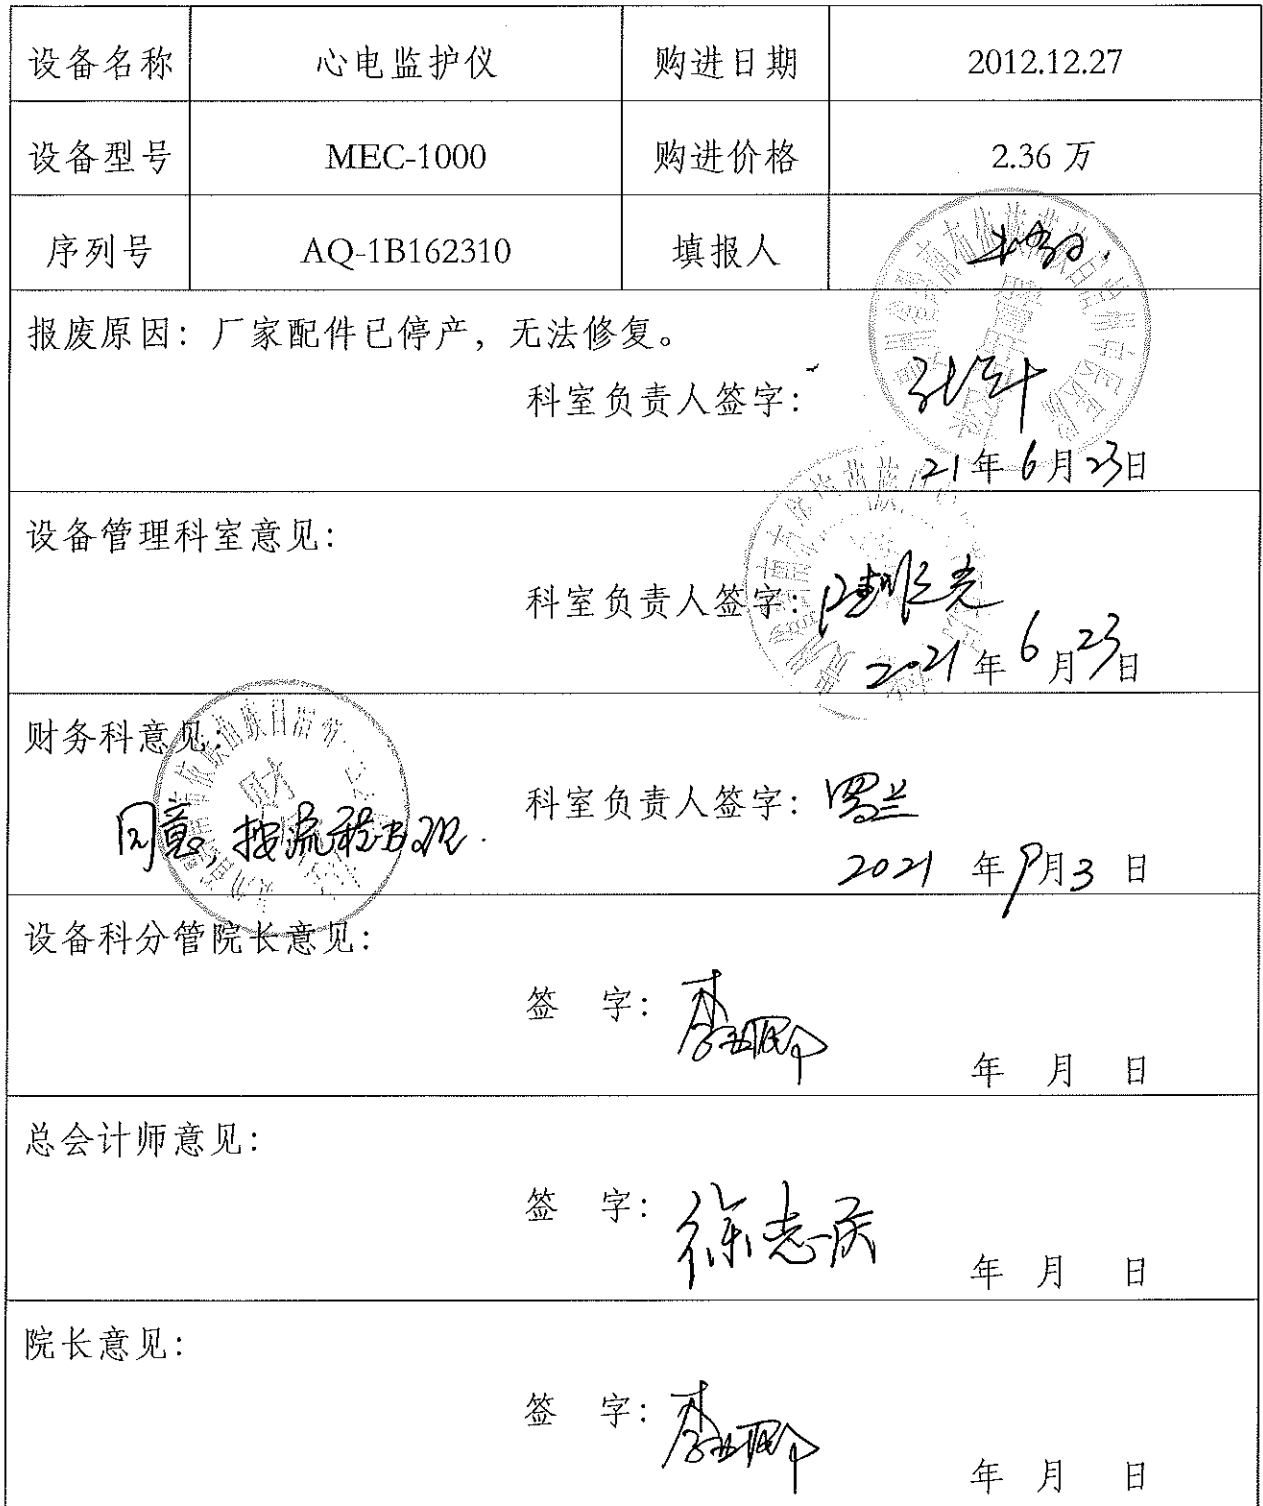 设备名称 心电监护仪 购进日期 2012.12.27
设备型号 MEC-1000 购进价格 2.36 万
序列号 AQ-1B162310 填报人
报废原因：厂家配件已停产，无法修复。
科室负责人签字：
21年6月23日
设备管理科室意见：
科室负责人签字：
2021年6月23日
财务科意见：
科室负责人签字：罗兰
同意，按流程办理.
2021 年9月3 日
设备科分管院长意见：
签 字：
年 月 日
总会计师意见：
签 字：徐志庆
年 月 日
院长意见：
签 字：
年 月 日